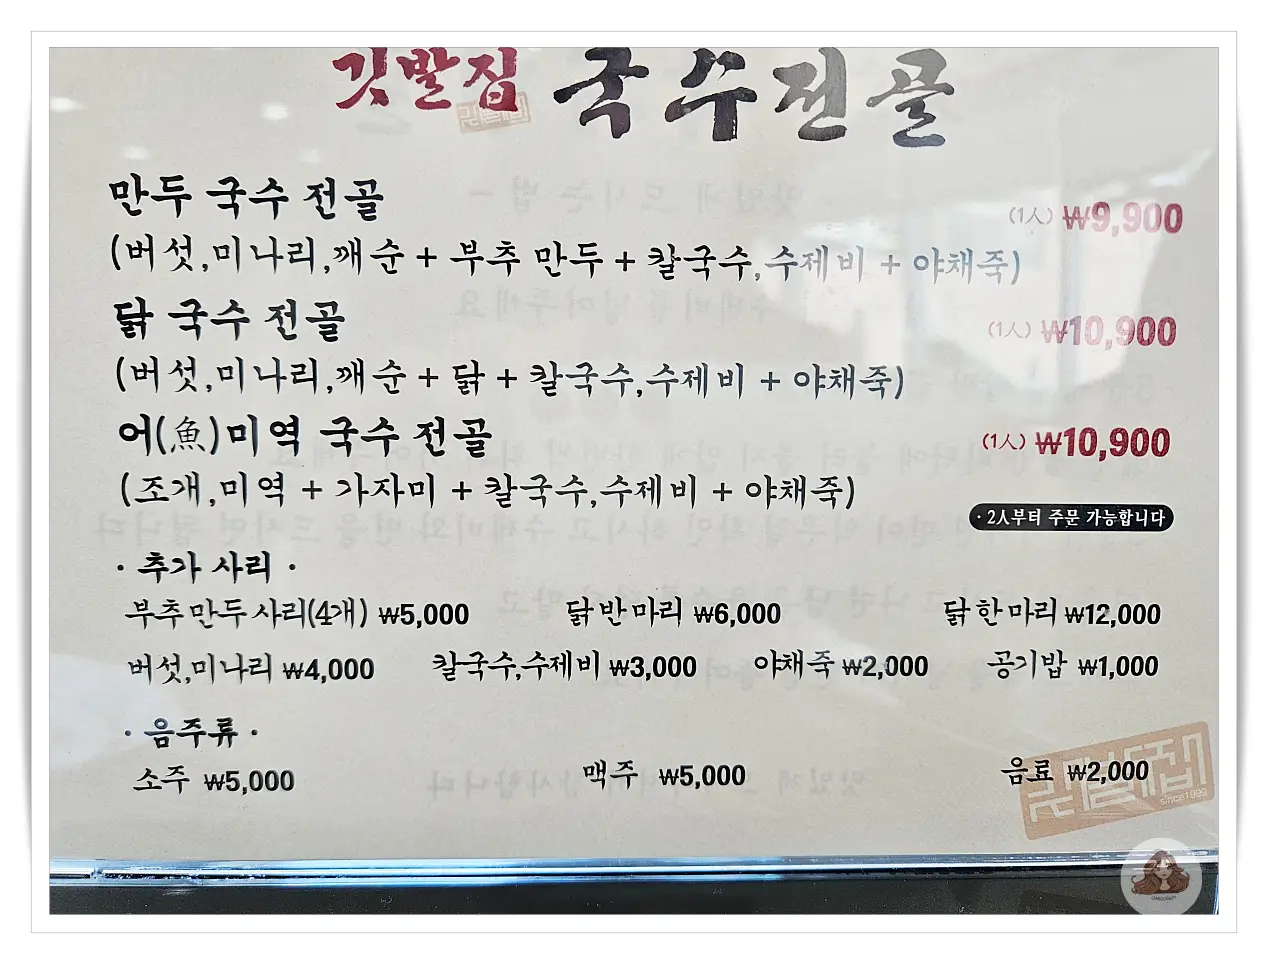 깃발집 국수전골
만두 국수 전골 (1人) ₩9,900
(버섯,미나리,깨순 + 부추 만두 + 칼국수,수제비 + 야채죽)
닭 국수 전골 (1人) ₩10,900
(버섯,미나리,깨순 + 닭 + 칼국수,수제비 + 야채죽)
어(魚)미역 국수 전골 (1人) ₩10,900
(조개,미역 + 가자미 + 칼국수,수제비 + 야채죽)
· 2人부터 주문 가능합니다
· 추가 사리 ·
부추만두사리(4개) ₩5,000 닭 반마리 ₩6,000 닭 한마리 ₩12,000
버섯,미나리 ₩4,000 칼국수,수제비 ₩3,000 야채죽 ₩2,000 공기밥 ₩1,000
· 음주류 ·
소주 ₩5,000 맥주 ₩5,000 음료 ₩2,000
깃발집
since1999